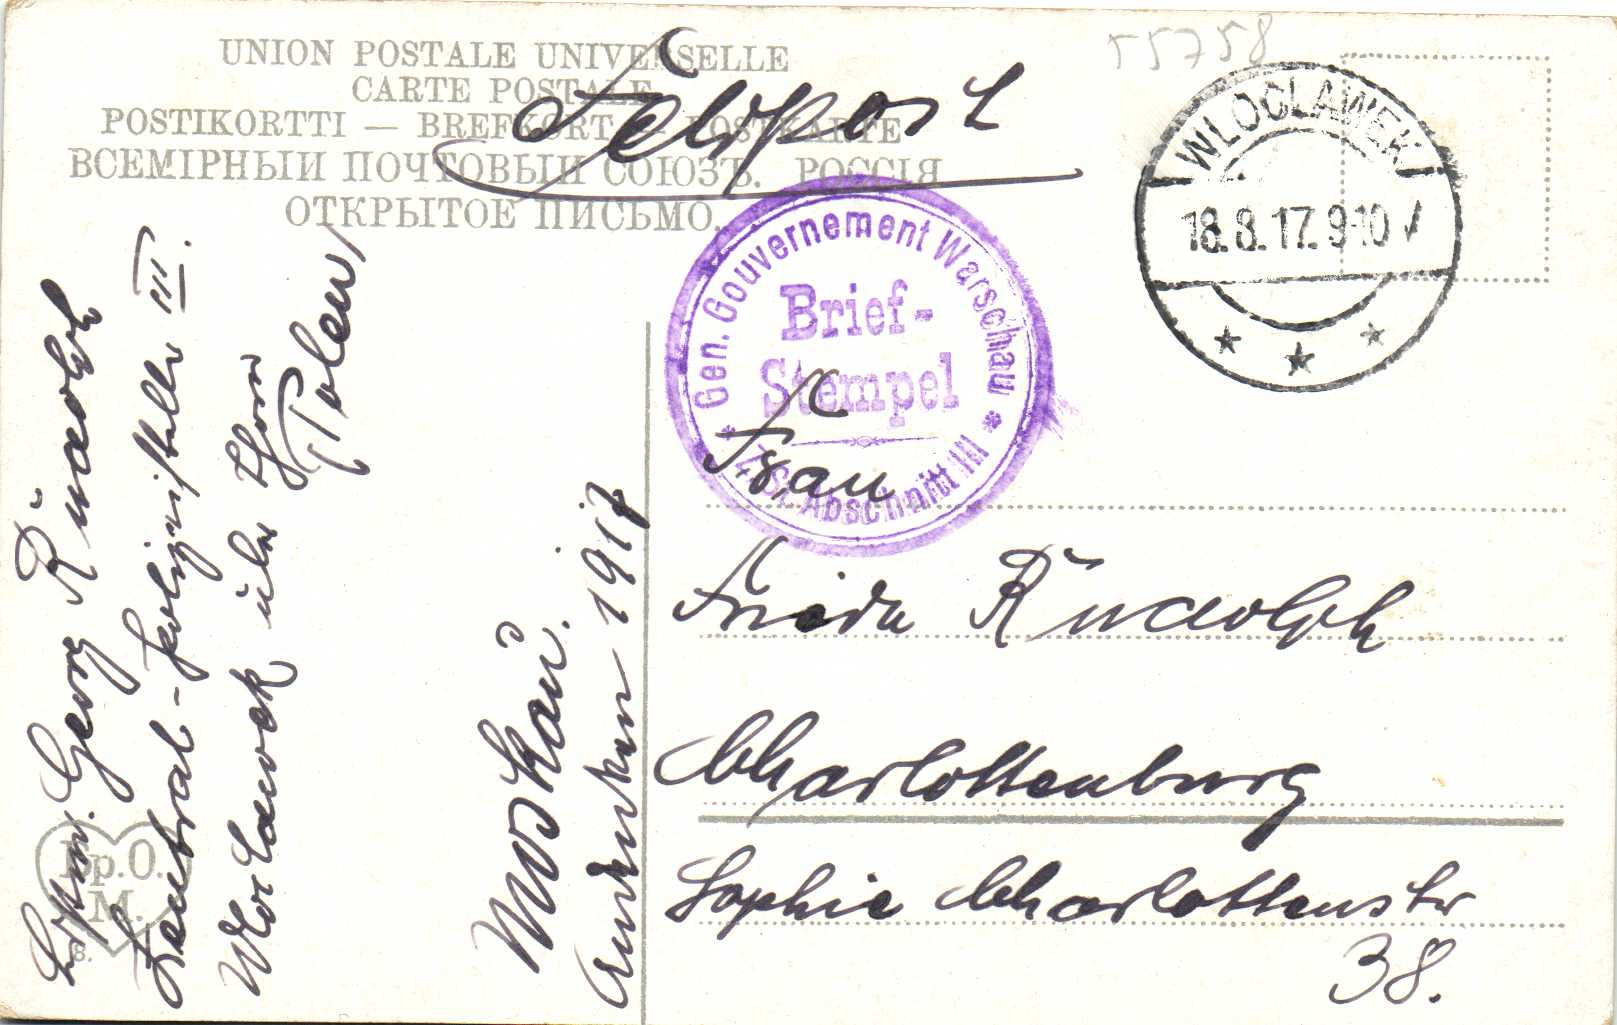 55758
UNION POSTALE UNIVERSELLE
CARTE POSTALE
POSTIKORTTI — BREFKORT — POSTKARTE
ВСЕМІРНЫЙ ПОЧТОВЫЙ СОЮЗЪ. РОССІЯ
ОТКРЫТОЕ ПИСЬМО.
Feldpost
WLOCLAWEK
18.8.17.9-10
Gen. Gouvernement Warschau
Brief-
Stempel
Z. St. Abschnitt III
Frau
Frieda Rudolph
Charlottenburg
Sophie Charlottenstr
38.
Georg Rudolph
Zentral-Polizeistelle III.
Wloclawek über Thorn
(Polen)
Moskau.
Andenken 1917
Др.О.
М.
8.